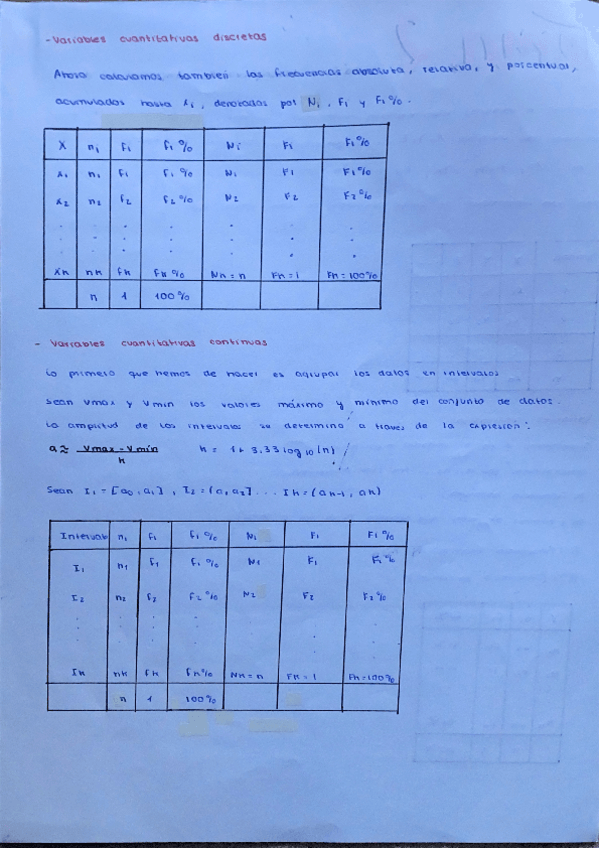 - Variables cuantitativas discretas
Ahora calculamos también las frecuencias absoluta, relativa, y porcentual,
acumulados hasta xi, denotadas por Ni, Fi y Fi%.
X ni fi fi% Ni Fi Fi%
x1 n1 f1 f1% N1 F1 F1%
x2 n2 f2 f2% N2 F2 F2%
. . . . . . .
. . . . . . .
. . . . . . .
xk nk fk fk% Nk = n Fk = 1 Fk = 100%
n 1 100%
- Variables cuantitativas continuas
Lo primero que hemos de hacer es agrupar los datos en intervalos
Sean Vmax y Vmin los valores máximo y mínimo del conjunto de datos.
La amplitud de los intervalos se determina a través de la expresión:
a ≈ (Vmax - Vmín)/k k = 1 + 3.33 log10 (n)
Sean I1 = [a0, a1], I2 = (a1, a2] ... Ik = (ak-1, ak)
Intervalo ni fi fi% Ni Fi Fi%
I1 n1 f1 f1% N1 F1 F1%
I2 n2 f2 f2% N2 F2 F2%
. . . . . .
. . . . . .
. . . . . .
Ik nk fk fk% Nk = n Fk = 1 Fk = 100%
n 1 100%